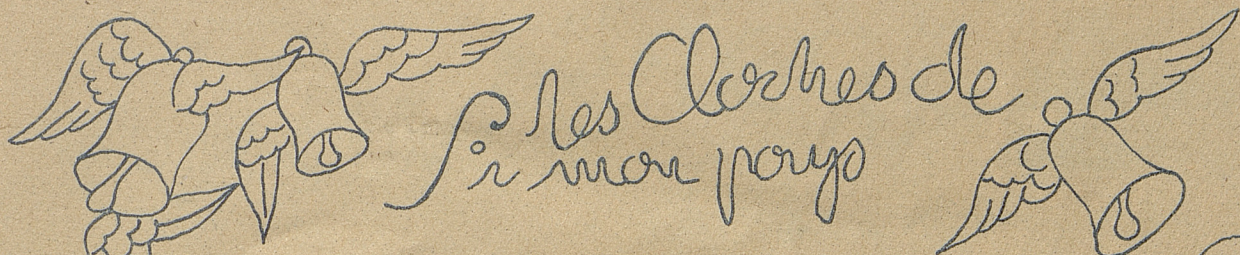 Si les Cloches de
mon pays